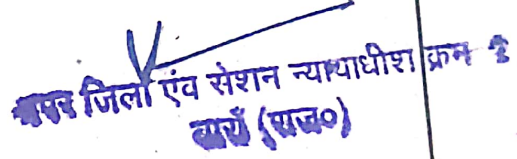 अपर जिला एंव सेशन न्यायाधीश क्रम 2
बारॉं (राज०)